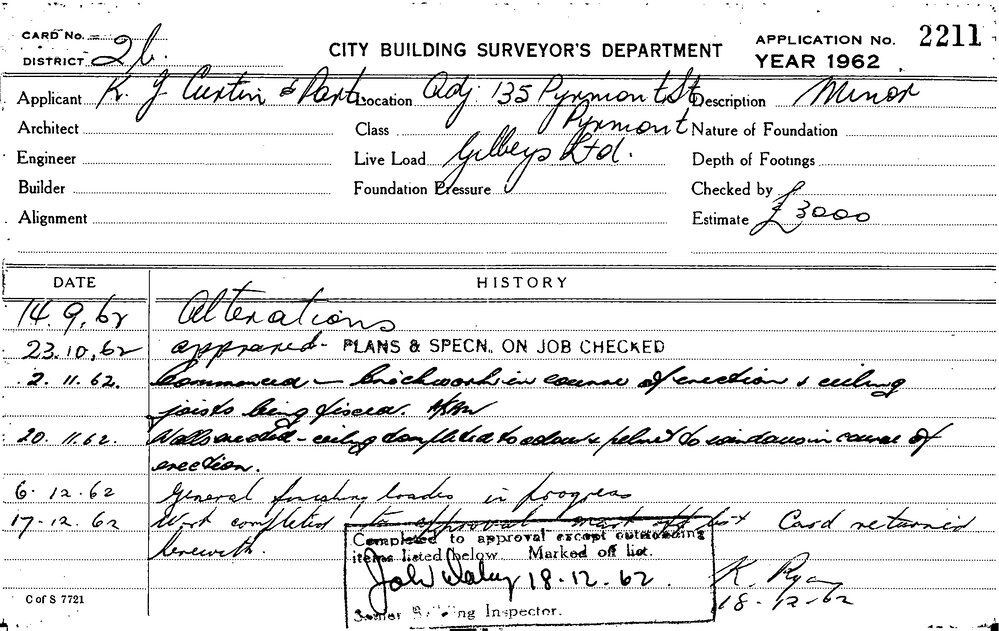 CARD No.
DISTRICT 2b.
CITY BUILDING SURVEYOR'S DEPARTMENT
APPLICATION No. 2211
YEAR 1962
Applicant K. J. Curtin & Part. Location Adj. 135 Pyrmont St Description Minor
Pyrmont
Architect Class Nature of Foundation
Engineer Live Load Gilbeys Ltd. Depth of Footings
Builder Foundation Pressure Checked by
Alignment Estimate £3000
DATE HISTORY
14.9.62 Alterations
23.10.62 approved - PLANS & SPECN. ON JOB CHECKED
2.11.62. Commenced - Brickwork in course of erection & ceiling
joists being fixed.
20.11.62. Walls - ceiling completed to & pelmet to windows in course of
erection.
6.12.62 General finishing trades in progress
17-12-62 Work completed to approval mark off list Card returned
herewith.
Completed to approval except outstanding
items listed below. Marked off list.
18.12.62.
Senior Building Inspector.
K. Ryan
18-12-62
C of S 7721